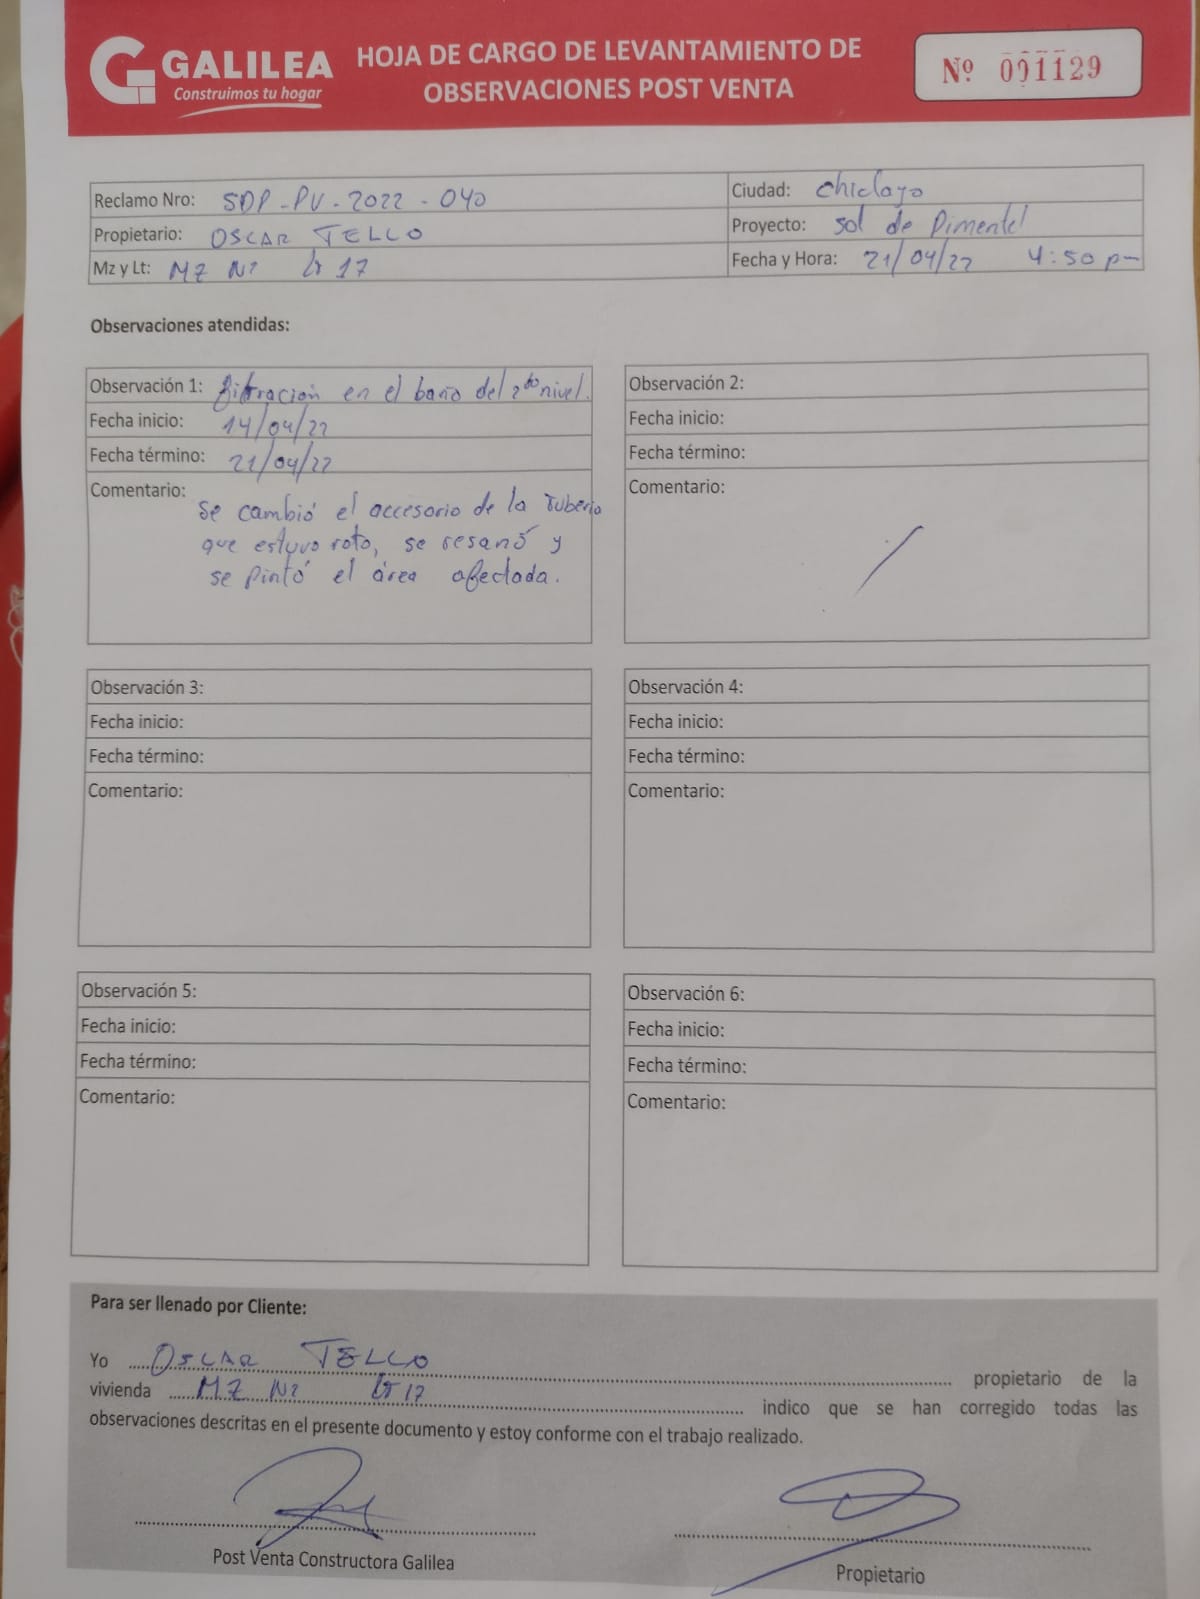 GALILEA
Construimos tu hogar
HOJA DE CARGO DE LEVANTAMIENTO DE
OBSERVACIONES POST VENTA
Nº 001129
Reclamo Nro: SDP-PV-2022-040
Ciudad: Chiclayo
Propietario: OSCAR TELLO
Proyecto: Sol de Pimentel
Mz y Lt: MZ N2 Lt 17
Fecha y Hora: 21/04/22 4:50 pm
Observaciones atendidas:
Observación 1: filtración en el baño del 2do nivel.
Fecha inicio: 14/04/22
Fecha término: 21/04/22
Comentario: Se cambió el accesorio de la Tuberia
que estuvo roto, se resanó y
se pintó el área afectada.
Observación 2:
Fecha inicio:
Fecha término:
Comentario:
Observación 3:
Fecha inicio:
Fecha término:
Comentario:
Observación 4:
Fecha inicio:
Fecha término:
Comentario:
Observación 5:
Fecha inicio:
Fecha término:
Comentario:
Observación 6:
Fecha inicio:
Fecha término:
Comentario:
Para ser llenado por Cliente:
Yo OSCAR TELLO propietario de la
vivienda MZ N2 Lt 17 indico que se han corregido todas las
observaciones descritas en el presente documento y estoy conforme con el trabajo realizado.
Post Venta Constructora Galilea
Propietario